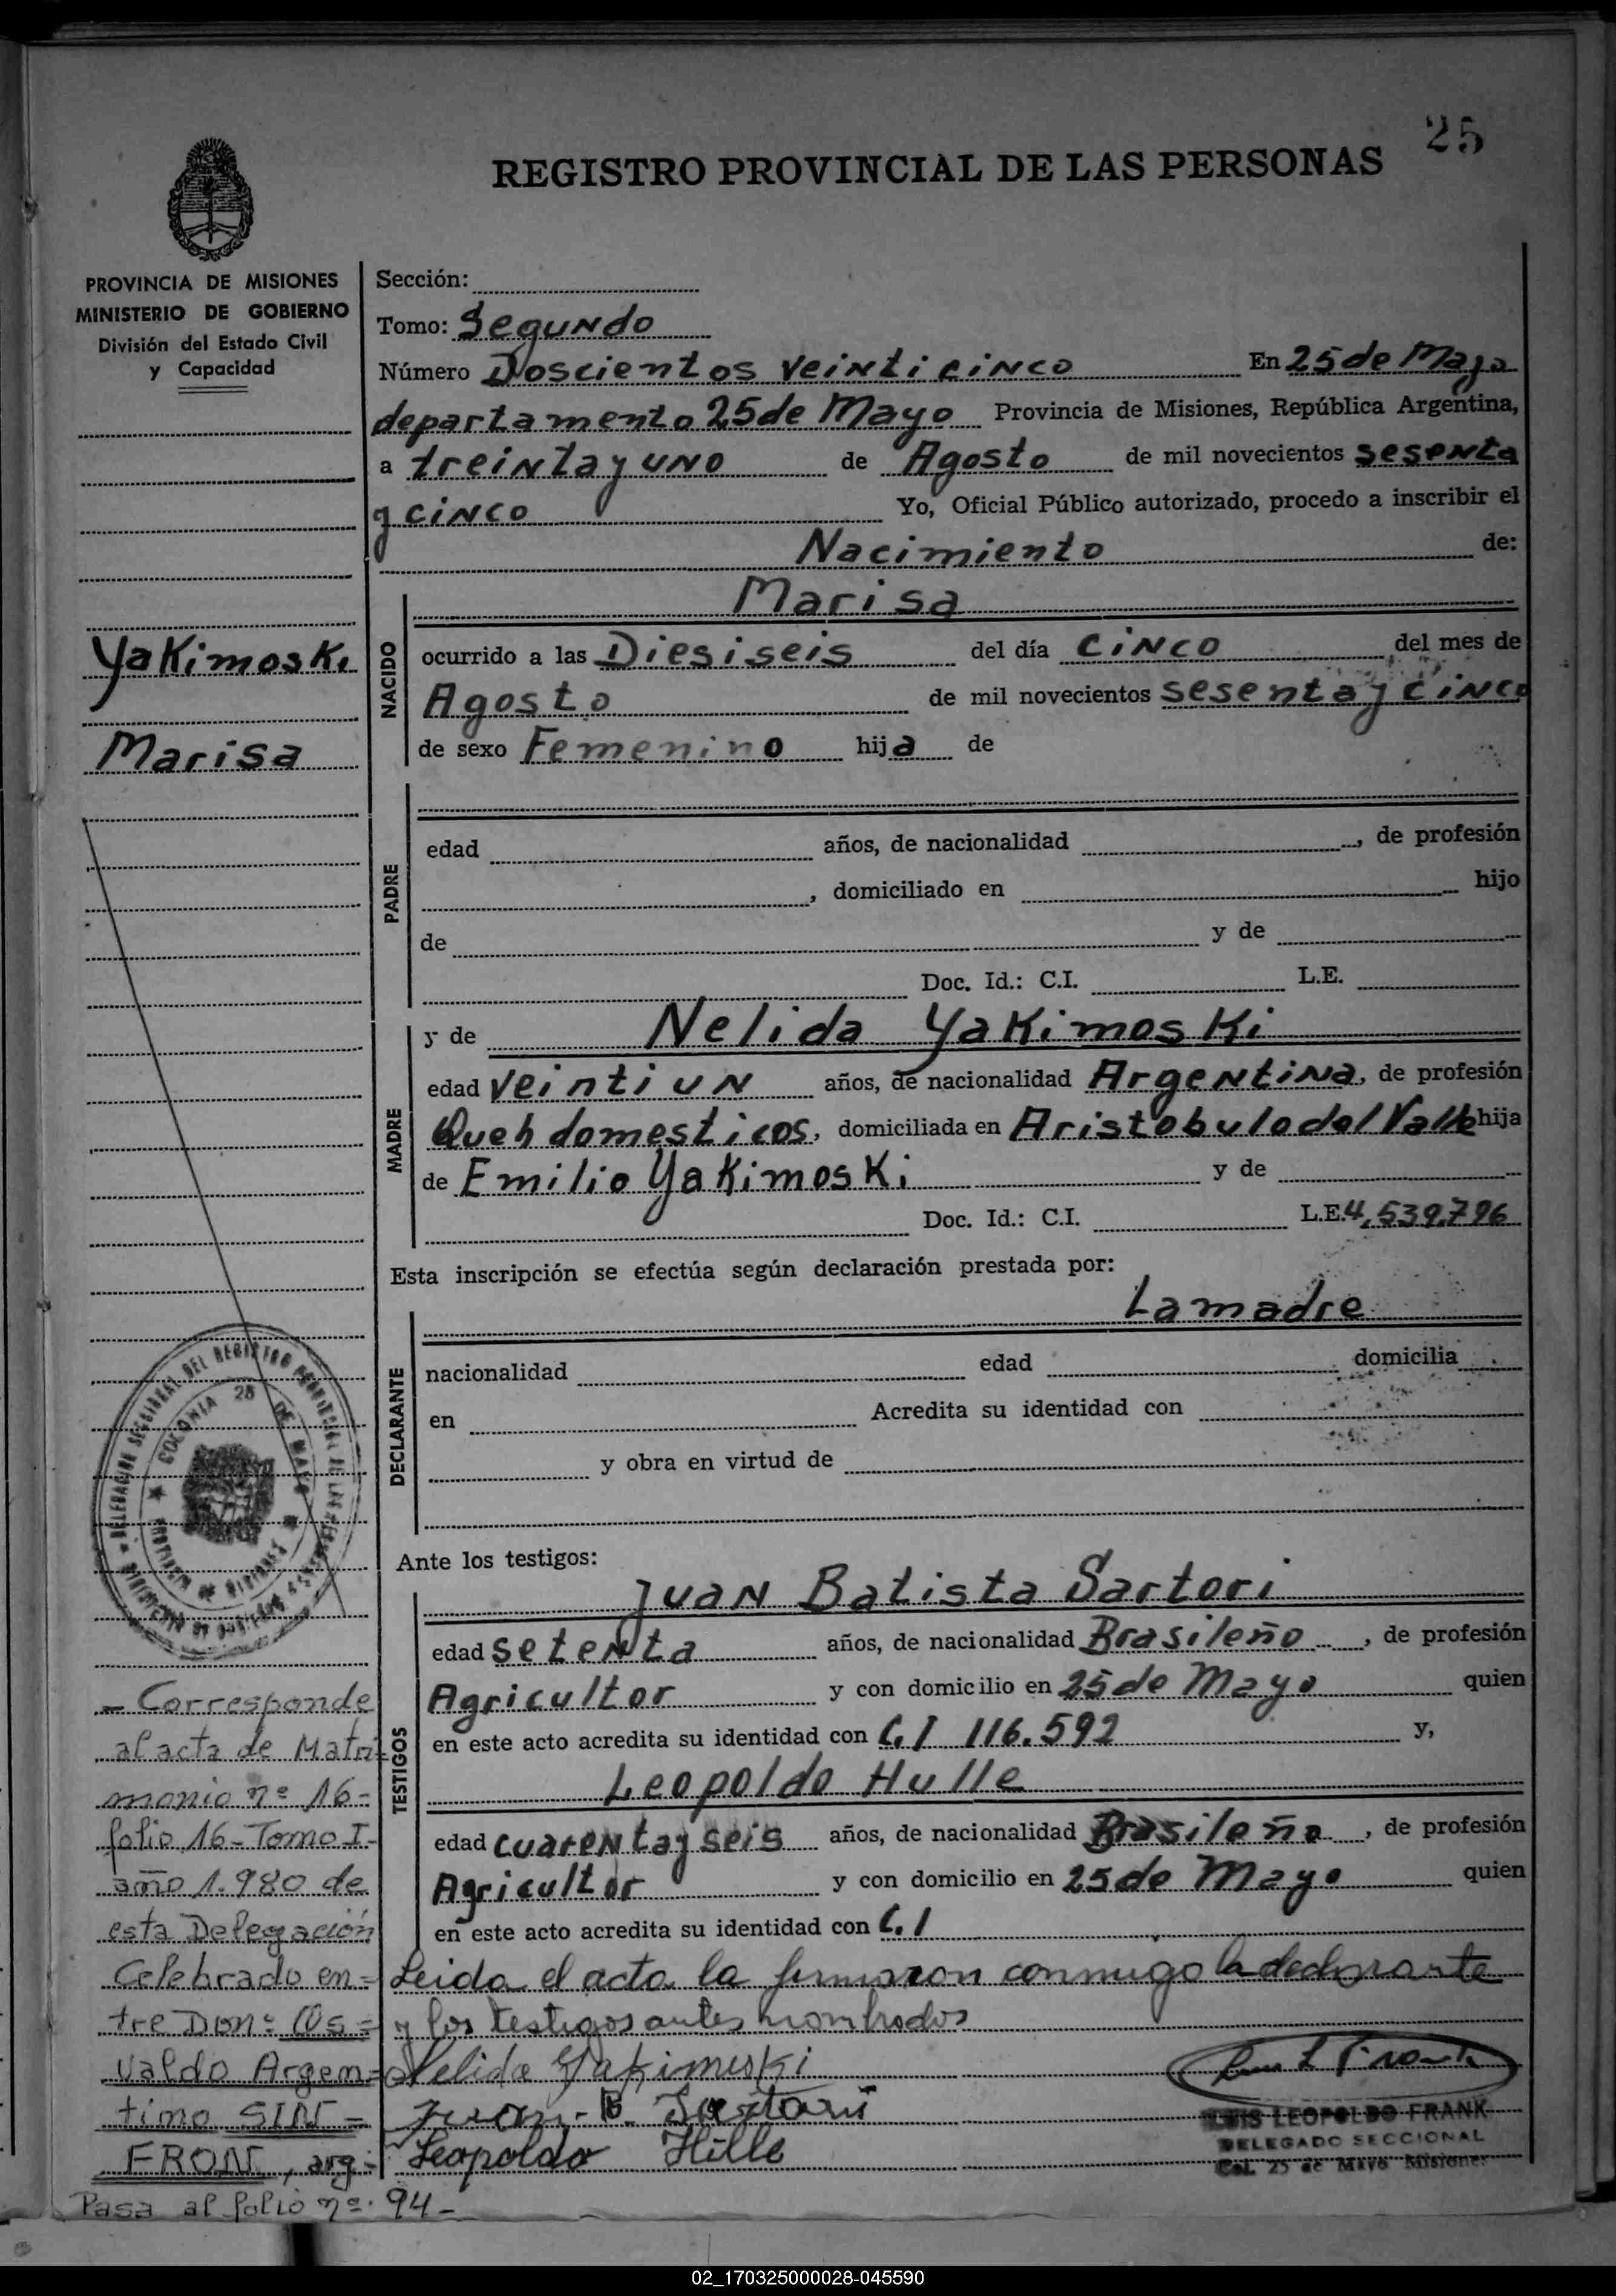 25
REGISTRO PROVINCIAL DE LAS PERSONAS
PROVINCIA DE MISIONES
MINISTERIO DE GOBIERNO
División del Estado Civil
y Capacidad
Yakimoski
Marisa
Sección:
Tomo: Segundo
Número Doscientos veinticinco En 25 de Mayo
departamento 25 de Mayo Provincia de Misiones, República Argentina,
a treinta y uno de Agosto de mil novecientos sesenta
y cinco Yo, Oficial Público autorizado, procedo a inscribir el
Nacimiento de:
NACIDO
Marisa
ocurrido a las Diesiseis del día cinco del mes de
Agosto de mil novecientos sesenta y cinco
de sexo Femenino hija de
PADRE
edad años, de nacionalidad , de profesión
, domiciliado en hijo
de y de
Doc. Id.: C.I. L.E.
MADRE
y de Nelida Yakimoski
edad veintiun años, de nacionalidad Argentina, de profesión
Queh domesticos, domiciliada en Aristobulo del Valle hija
de Emilio Yakimoski y de
Doc. Id.: C.I. L.E. 4,539.796
Esta inscripción se efectúa según declaración prestada por:
La madre
DECLARANTE
nacionalidad edad domicilia
en Acredita su identidad con
y obra en virtud de
Ante los testigos:
TESTIGOS
Juan Batista Sartori
edad setenta años, de nacionalidad Brasileño, de profesión
Agricultor y con domicilio en 25 de Mayo quien
en este acto acredita su identidad con C.I 116.592 y,
Leopoldo Hulle
edad cuarenta y seis años, de nacionalidad Brasileño, de profesión
Agricultor y con domicilio en 25 de Mayo quien
en este acto acredita su identidad con C.I
Leida el acta la firmaron conmigo la declarante
y los testigos antes nombrados
Nelida Yakimuski
Juan. B. Sartori
Leopoldo Hille
LUIS LEOPOLDO FRANK
DELEGADO SECCIONAL
Col. 25 de Mayo Misiones
COLONIA 25 DE MAYO
PROVINCIA DE MISIONES
- Corresponde
al acta de Matri
monio nº 16-
folio 16-Tomo I-
año 1.980 de
esta Delegación
Celebrado en=
tre Don: Os=
valdo Argen=
tino SIN=
FRON, arg-
Pasa al folio nº. 94-
02_170325000028-045590